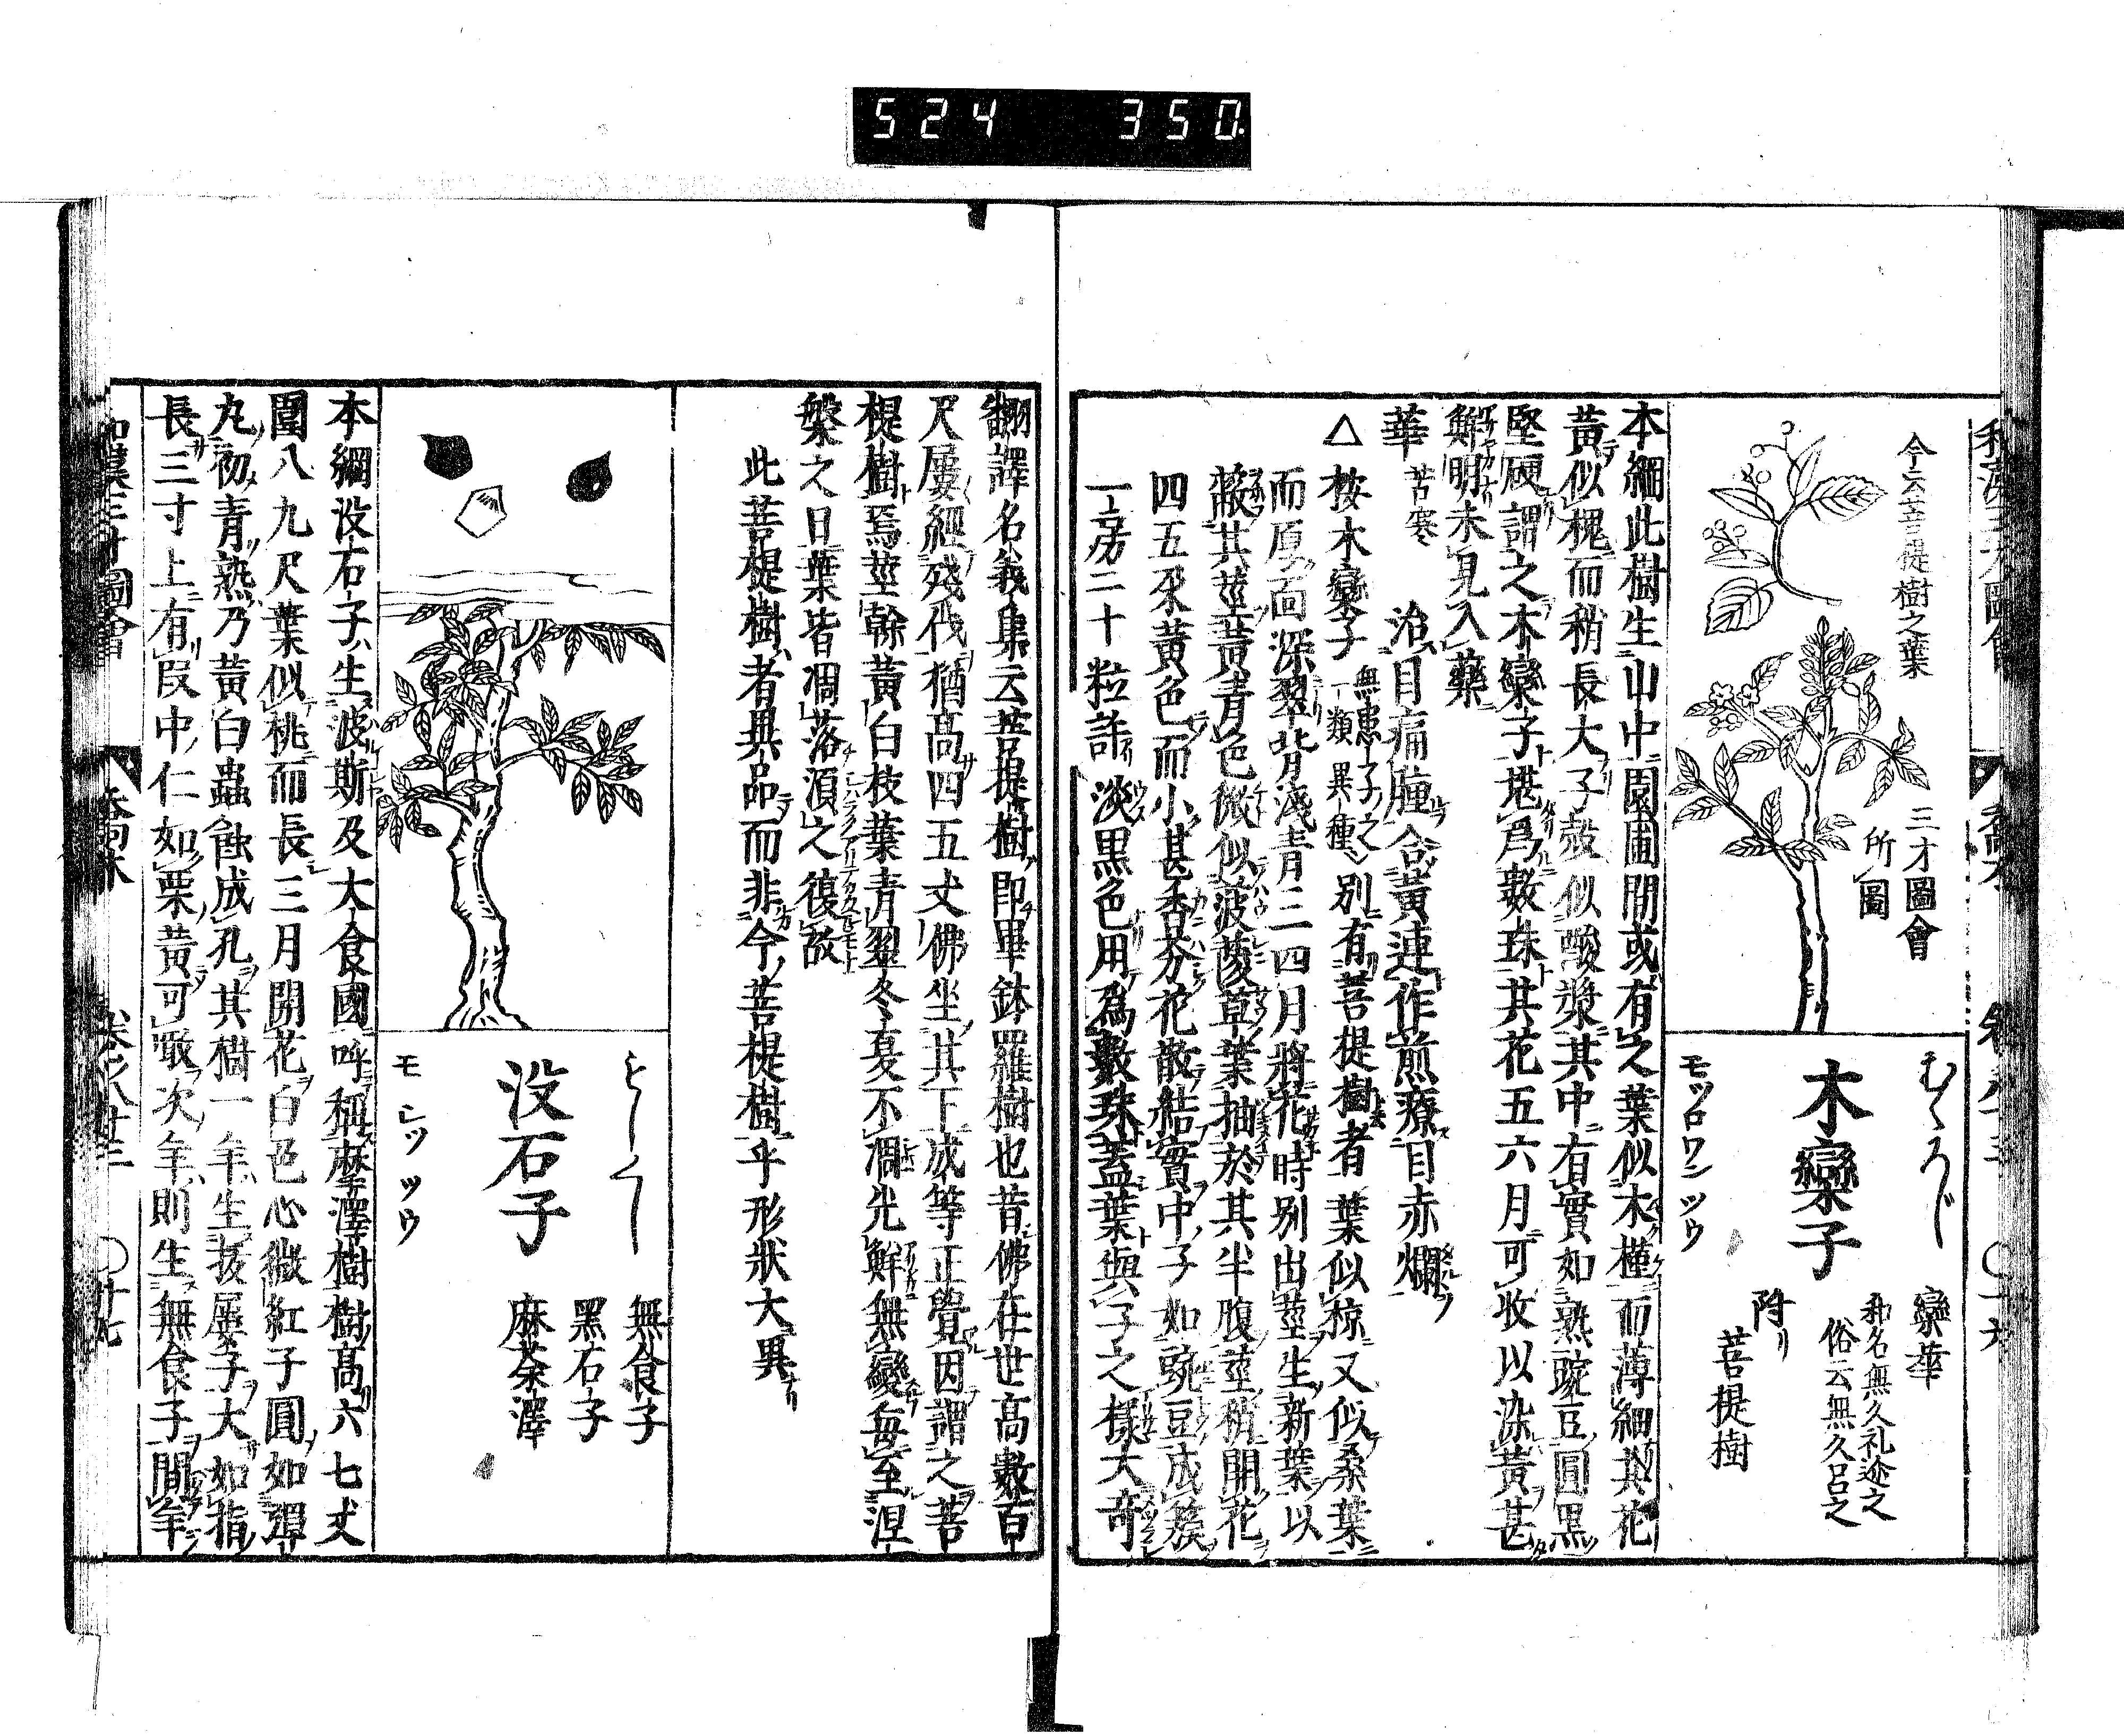 524 350
今云菩提樹之葉
三才圖會
所圖
むくろじ
木欒子
モツロワンツウ
欒華
和名無久礼迩之
俗云無久呂之
附リ
菩提樹
本綱此樹生山中園圃間或有之葉似木槿而薄細其花
黃似槐而稍長大子殼似酸漿其中有實如熟豌豆圓黑
堅硬謂之木欒子堪爲數珠其花五六月可收以染黃甚
鮮明未見入藥
華 苦寒 治目痛腫合黃連作煎療目赤爛
△按木欒子 無患子之一類異種 別有菩提樹者葉似椋又似桑葉
而厚面深翠背淺青三四月將花時別出莖生新葉以
蔽其莖黃青色微似菠薐草葉抽於其半腹莖稍開花
四五朶黃色而小甚香芬花散結實中子如豌豆成簇
一房二十粒許淡黑色用為數珠蓋葉與子之樣大奇
翻譯名義集云菩提樹即畢鉢羅樹也昔佛在世高數百
尺屢經殘伐猶高四五丈佛坐其下成等正覺因謂之菩
提樹焉莖幹黃白枝葉青翠冬夏不凋光鮮無變毎至涅
槃之日葉皆凋落須之復故
此菩提樹者異品而非今菩提樹乎形狀大異
もしくし
没石子
モシツツウ
無食子
黑石子
麻荼澤
本綱没石子生波斯及大食國呼稱摩澤樹樹高六七丈
圍八九尺葉似桃而長三月開花白色心微紅子圓如彈
丸初青熟乃黃白蟲蝕成孔其樹一年生拔屢子大如指
長三寸上有叚中仁如栗黃可噉次年則生無食子間年
和漢三才圖會
喬木
卷之八十三
〇廿七